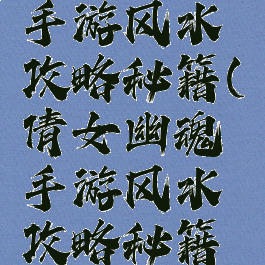 手游风水
攻略秘籍(
倩女幽魂
手游风水
攻略秘籍